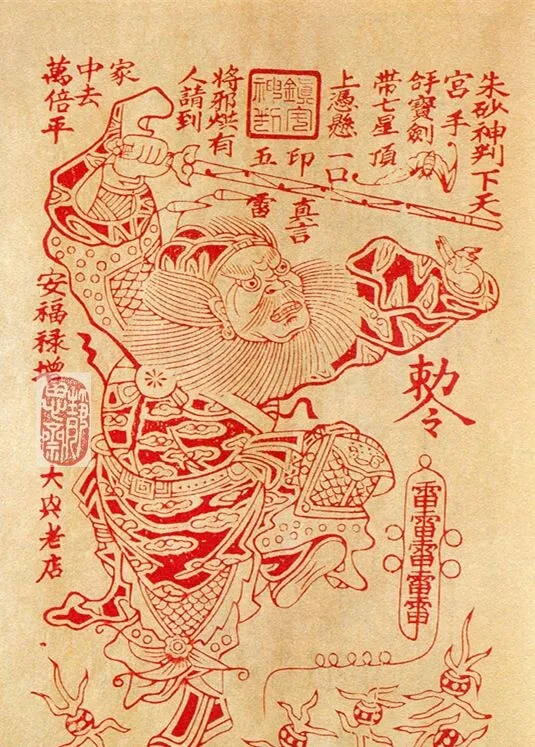 朱砂神判下天
宮手
寶劍
帶七星頂
上憑懸一口
印真言
鎮宅
神判
五雷
將邪烘有
人請到
家
中去
萬倍平
安福禄增
大興老店
勅令
雷雷雷雷雷